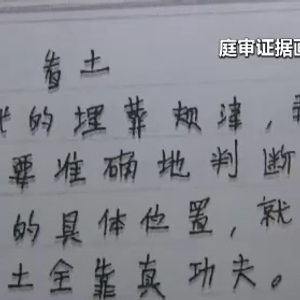 庭审证据
看土
的埋葬规津，
要准确地判断
的具体位置，就
土全靠真功夫。